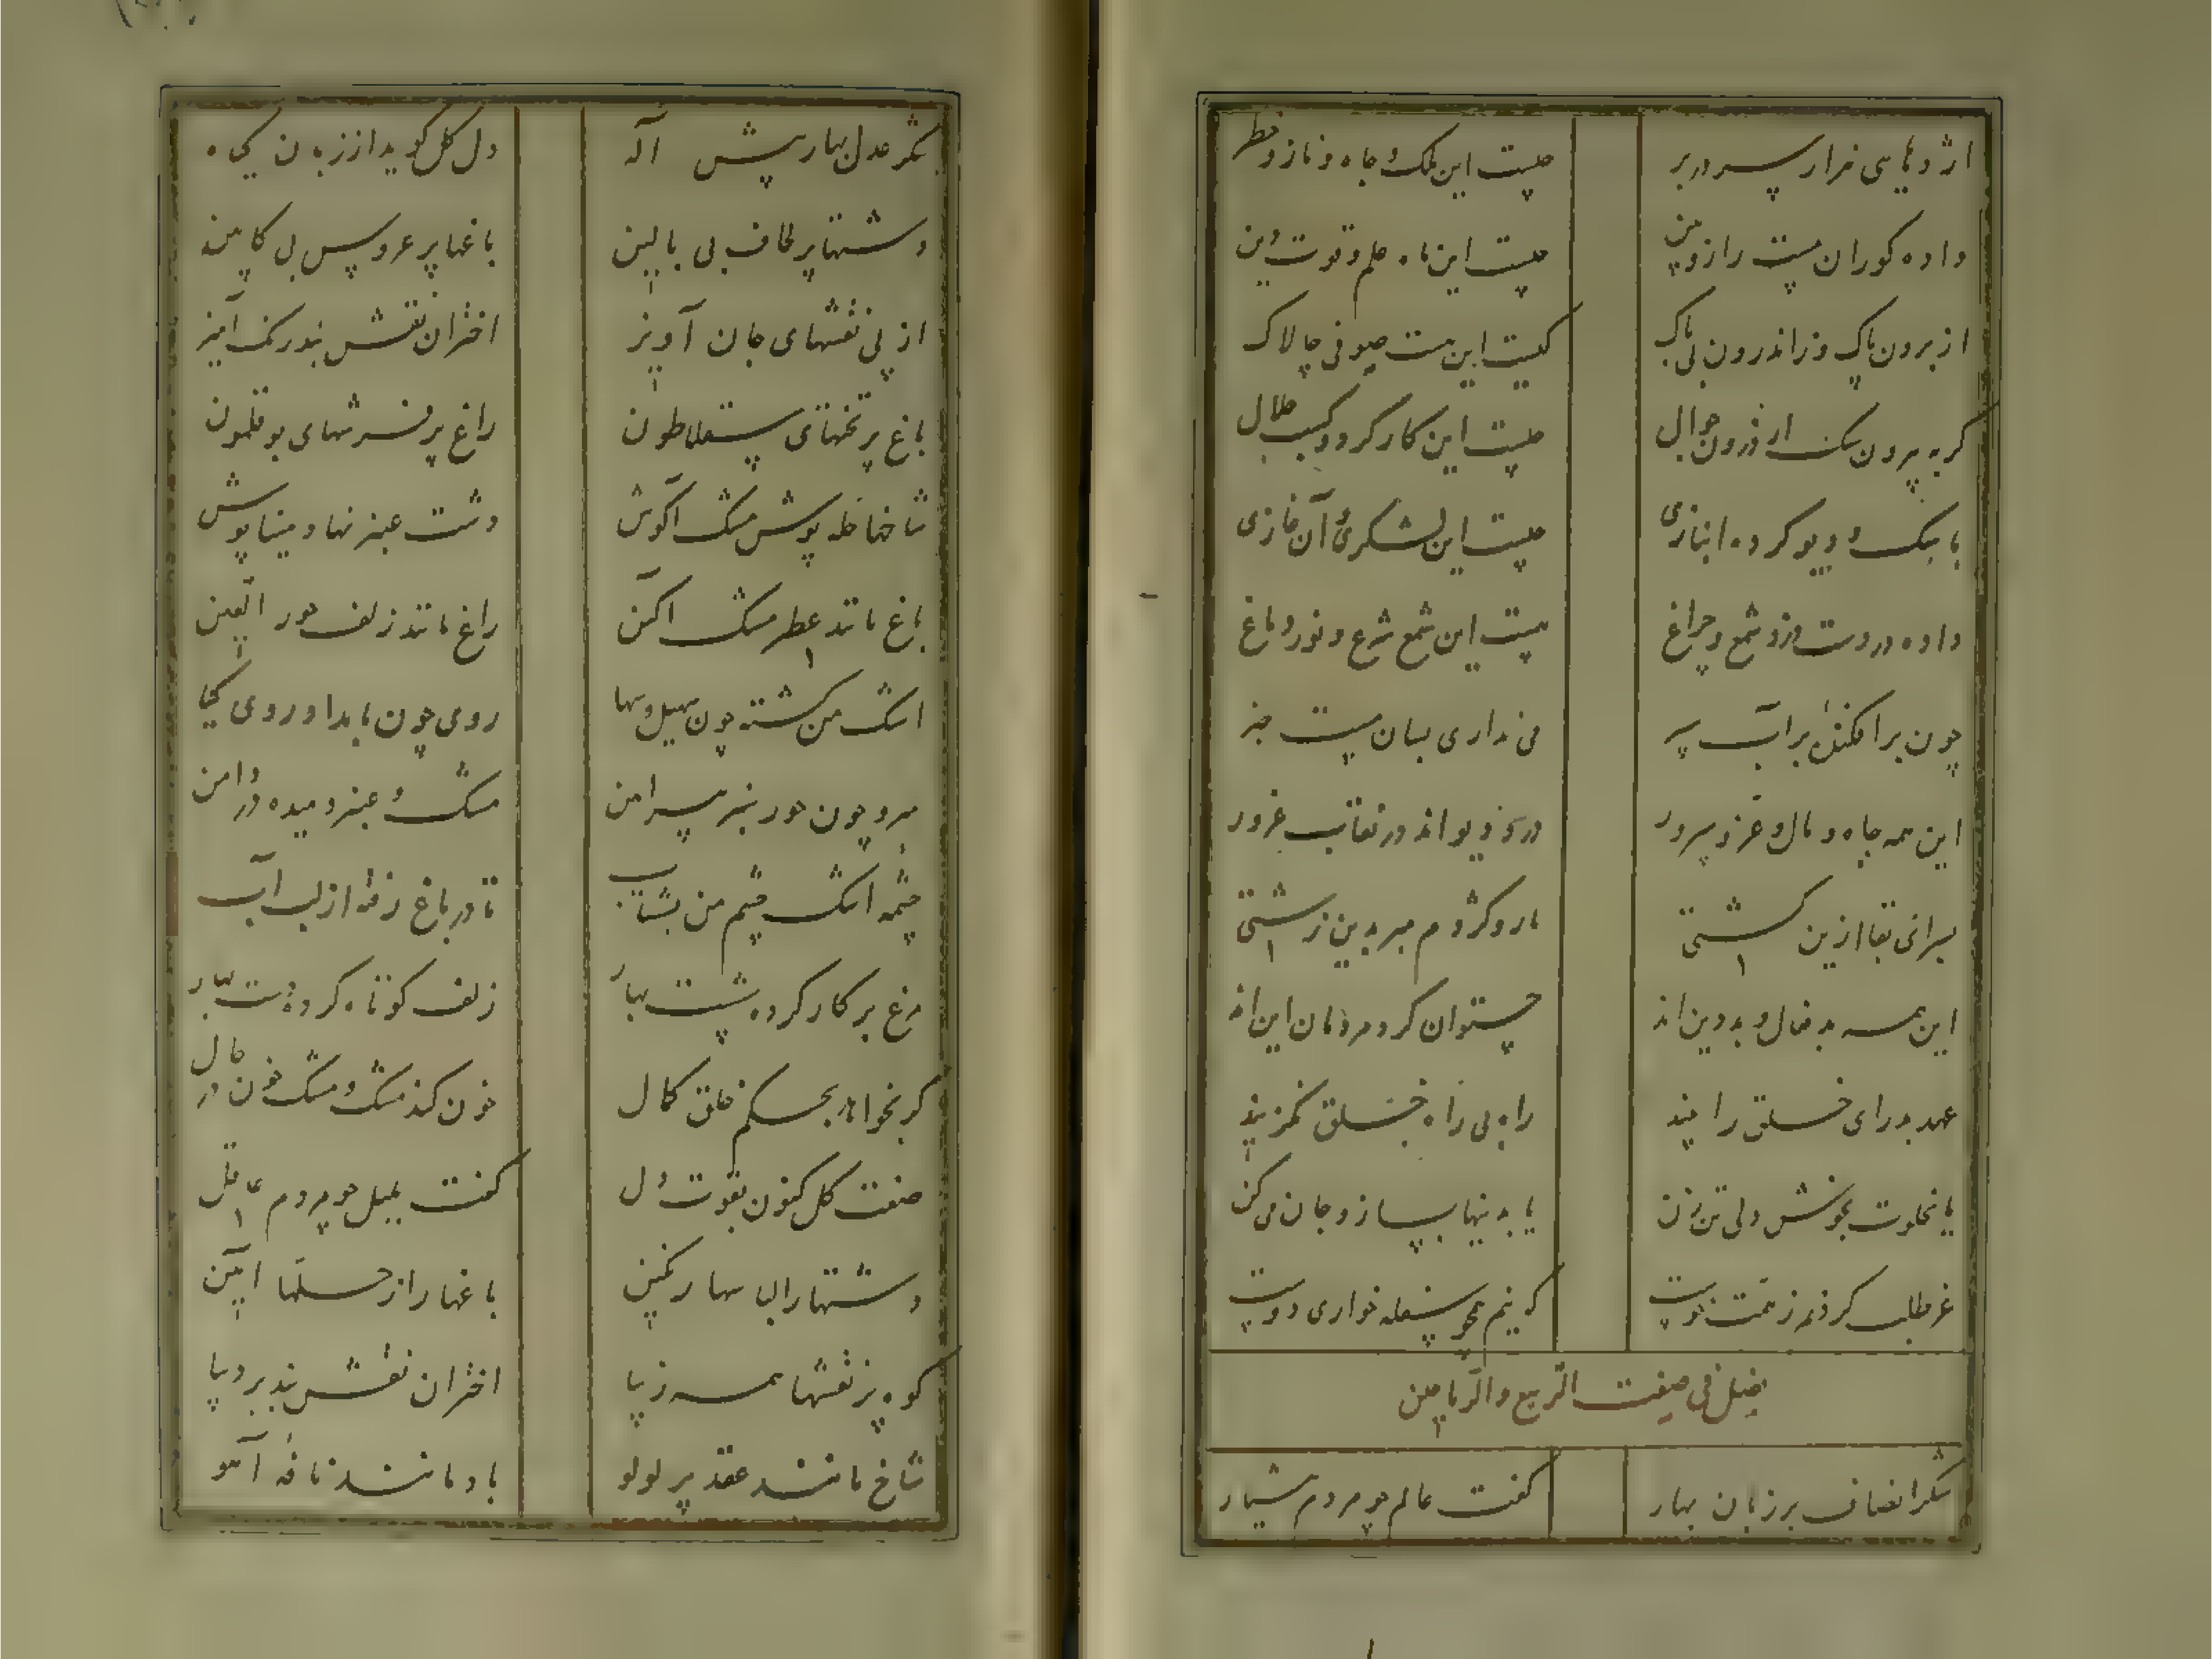 اژدهایی هزار سر در بر چیست این ملک و جاه و ناز و خطر
داده کوران مست را زوبین چیست این ماه علم و قوت دین
از برون پاک وز اندرون بی باک کیست این هست صوفی چالاک
گربه بیرون سک از درون جوال چیست این کار کرد و کسب حلال
با سک و دیو کرده انبازی چیست این لشکری و آن غازی
داده در دست دزد شمع و چراغ چیست این شمع شرع و نور دماغ
چون بر افکند بر آب سپر می نداری بسان میت خبر
این همه جاه و مال و عز و سرور دان که دیواند در نقاب غرور
بسرای بقا ازین کشتی مار و کژدم مبر بدین زشتی
این همه بد فعال و بد دین اند چتوان کرد مردمان این اند
عهد بد رای خلق را چند راه بی راه خلق کم
یا بخلوت بجوش و لی تن زن یا به تنها بساز و جان می کن
غم طلب کرد نم ز همت خوست که نیم همچو سفله خواری دوست
فصل فی صفت الربیع والریاحین
شکر انصاف بر زبان بهار گفت عالم چو مردم هشیار
شکر عدل بهار پیش اله دل گل گوید از زبان گیاه
دشتها پر لحاف بی بالین باغها پر عروس بی کابین
از پی نقشهای جان آویز اختران نقش بند رنک آمیز
باغ پر تختهای سقلاطون راغ پر فرشهای بوقلمون
شاخها حله پوش مشک آگوش دشت عنبر نهاد و مینا پوش
باغ مانند عطر مشک آگین راغ مانند زلف حور آیین
اشک من گشته چون سهیل و سها روی چون بامداد روی گیا
سرو چون حور سبز پیراهن مشک و عنبر دمیده در دامن
چشمه اشک چشم من بشتاب تا در باغ رفته از لب آب
مرغ بر کار کرده شست بهار زلف کوتاه کرده
گر بخواهد بحکم خلق کمال خون کند مشک و مشک خون در حال
صفت گل کنون بقوت دل گفت بلبل چو مردم عاقل
دشتها را لباسها رنگین باغها را ز حلها آیین
کوه پر نقشها همه زیبا اختران نقش بند بر دیبا
شاخ مانند عقد پر لولو باد مانند نافه آهو